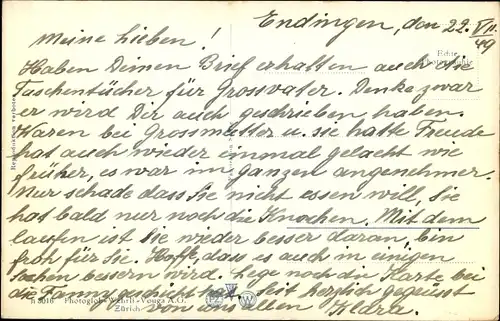 Endingen, den 22. VII. 49
Meine Lieben!
Haben Deinen Brief erhalten auch die
Taschentücher für Grossvater. Denke zwar
er wird Dir auch geschrieben haben.
Waren bei Grossmutter u. sie hatte Freude
hat auch wieder einmal gelacht wie
früher, es war im ganzen angenehmer.
Nur schade dass Sie nicht essen will, Sie
hat bald nur noch die Knochen. Mit dem
laufen ist Sie wieder besser daran, bin
froh für Sie. Hoffe, dass es auch in einigen
Sachen bessern wird. Lege noch die Karte bei
die Fanny geschickt hat. Seit herzlich gegüsst
von uns allen Klara.
Echte
Photographie
Reproduktion verboten
Photoglob-Wehrli-Vouga A.G.
Zürich
PZ W